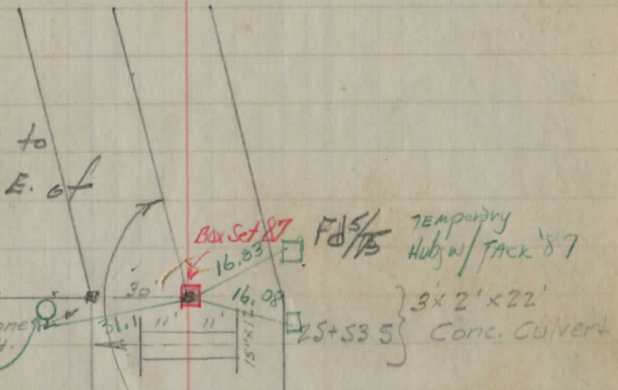 to
E. of
Box Set 87
Fd 5/75
Temporary
Hub w/ TACK '87
16.83
30'
16.08
31.1
11' 11'
25+53.5
3' x 2' x 22'
Conc. Culvert